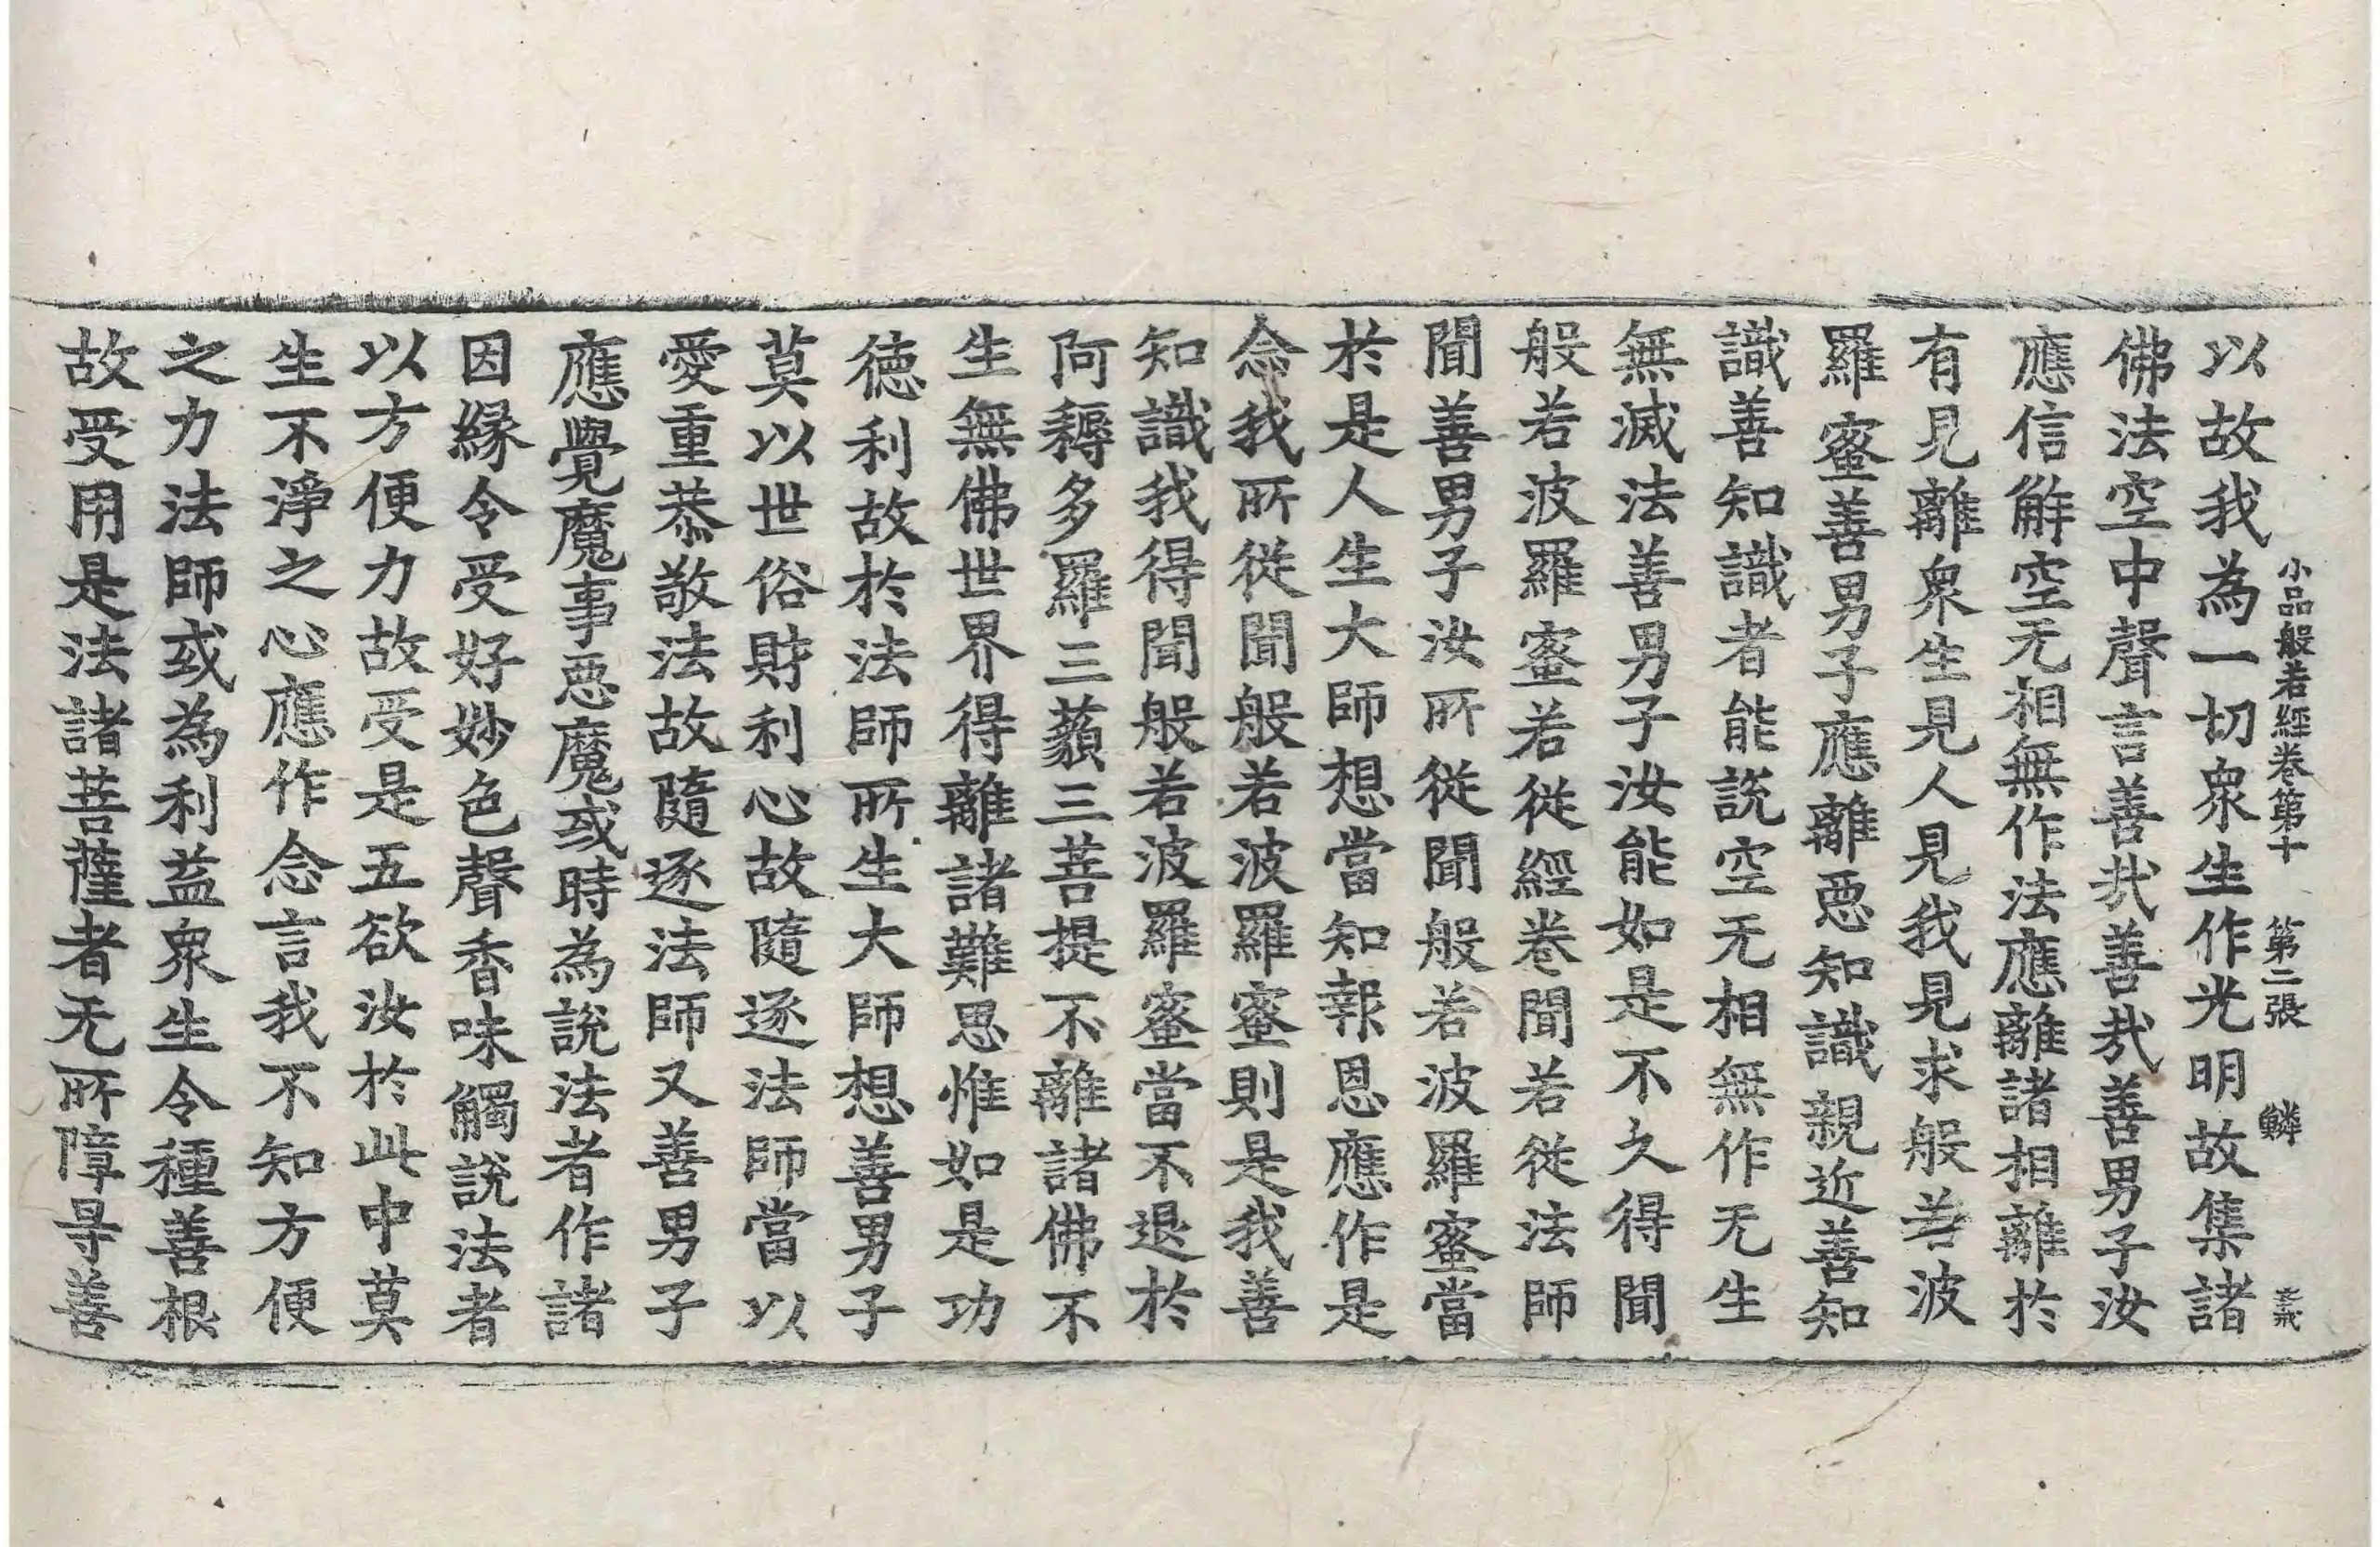 小品般若經卷第十 第二張 鱗
以故我為一切衆生作光明故集諸
佛法空中聲言善㢤善㢤善男子汝
應信解空无相無作法應離諸相離於
有見離衆生見人見我見求般若波
羅蜜善男子應離惡知識親近善知
識善知識者能說空无相無作无生
無滅法善男子汝能如是不久得聞
般若波羅蜜若從經卷聞若從法師
聞善男子汝所從聞般若波羅蜜當
於是人生大師想當知報恩應作是
念我所從聞般若波羅蜜則是我善
知識我得聞般若波羅蜜當不退於
阿耨多羅三藐三菩提不離諸佛不
生無佛世界得離諸難思惟如是功
德利故於法師所生大師想善男子
莫以世俗財利心故隨逐法師當以
愛重恭敬法故隨逐法師又善男子
應覺魔事惡魔或時為說法者作諸
因縁令受好妙色聲香味觸說法者
以方便力故受是五欲汝於此中莫
生不淨之心應作念言我不知方便
之力法師或為利益衆生令種善根
故受用是法諸菩薩者无所障㝵善